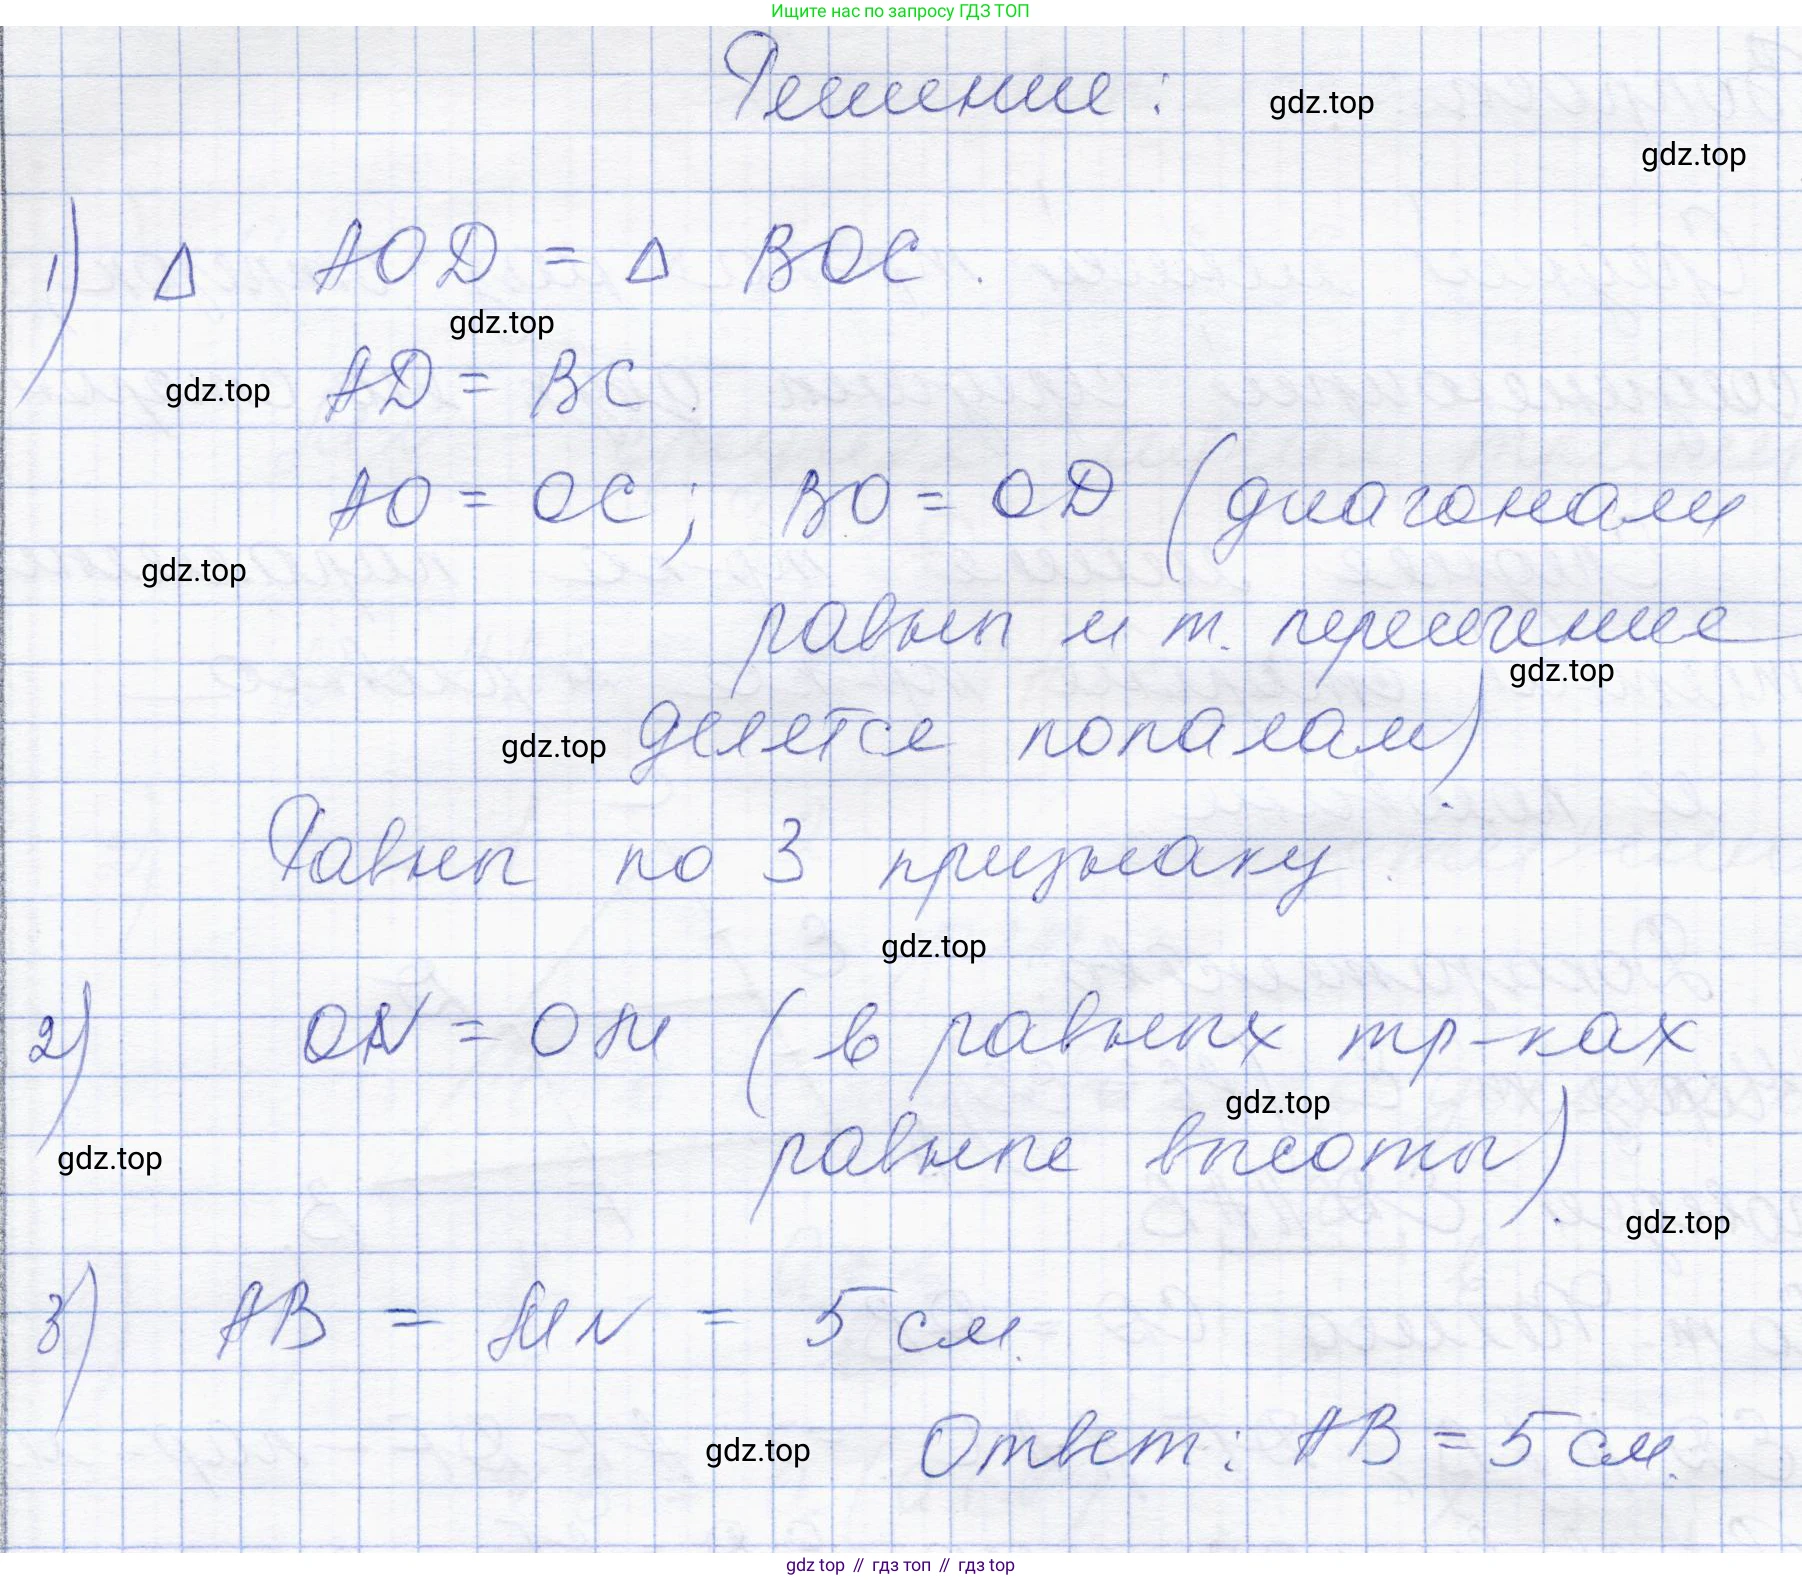 Ищите нас по запросу ГДЗ ТОП
Решение:
gdz.top
gdz.top
1) Δ AOD = Δ BOC.
gdz.top
AD = BC.
gdz.top
AO = OC; BO = OD (диагонали
gdz.top
равны и т. пересечение
gdz.top
делятся пополам).
gdz.top
Равны по 3 признаку.
gdz.top
2) ON = OM (в равных тр-ках
gdz.top
равные высоты).
gdz.top
gdz.top
3) AB = MN = 5 см.
Ответ: AB = 5 см.
gdz.top
gdz top // гдз топ // гдз top